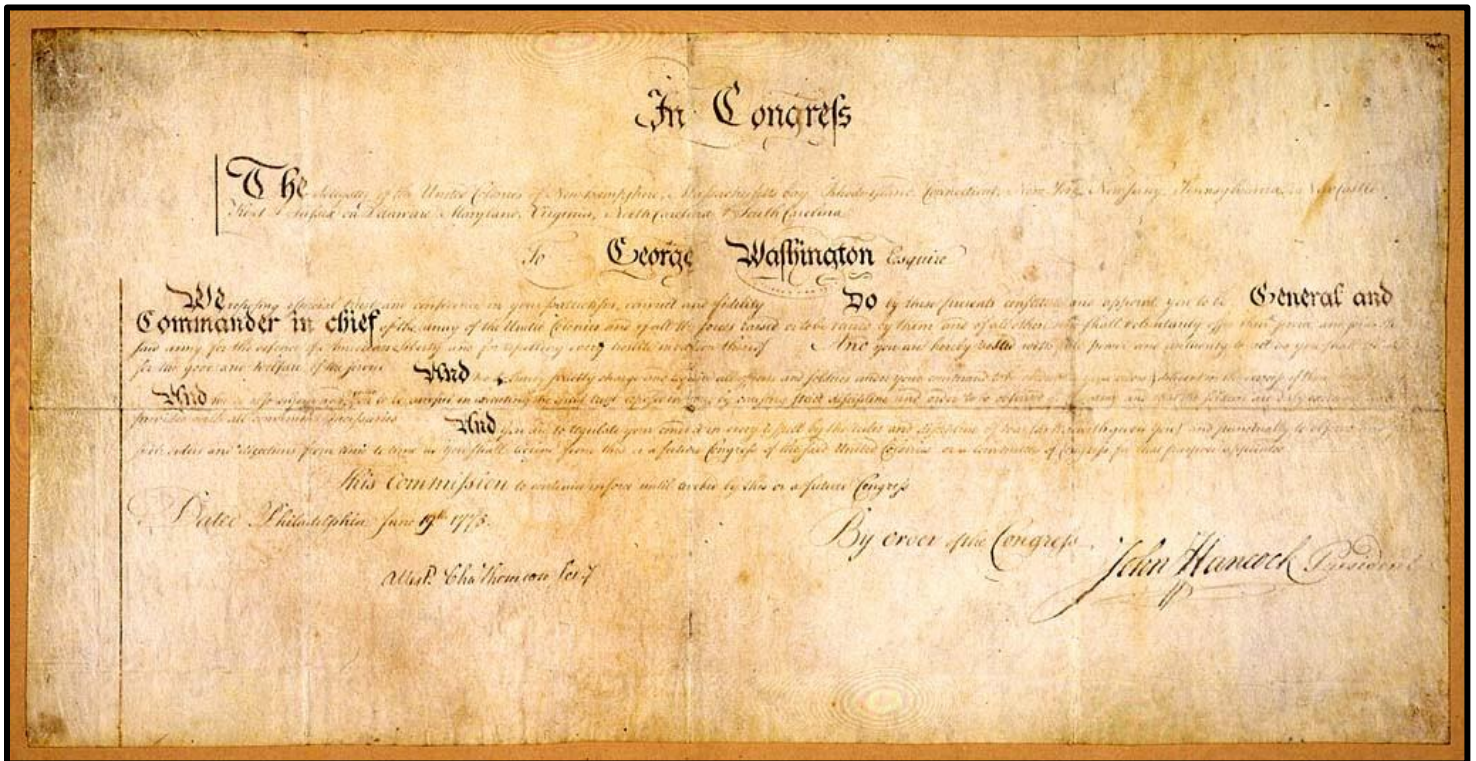 In Congreſs
The delegates of the United Colonies of Newhampshire, Massachusetts bay, Rhode Island, Connecticut, New York, New Jersey, Pennsylvania, New Castle
Kent & Sussex on Delaware, Maryland, Virginia, North Carolina & South Carolina
To George Waſhington Esquire
We reposing especial trust and confidence in your patriotism, conduct and fidelity Do by these presents constitute and appoint you to be General and
Commander in chief of the army of the United Colonies and of all the forces raised or to be raised by them and of all others who shall voluntarily offer their and join the
said army for the defence of American liberty and for repelling every hostile invasion thereof And you are hereby vested with full power and authority to act as you shall
for the good and welfare of the service And we do hereby strictly charge and require all officers and soldiers under your command to be obedient to your orders & diligent in the exercise of their
And we also enjoin and require you to be careful in executing the great trust reposed in you, by causing strict discipline and order to be observed in the army and that the soldiers are duly exercised and
provided with all convenient necessaries And you are to regulate your conduct in every respect by the rules and discipline of war (as herewith given you) and punctually to observe
such orders and directions from time to time as you shall receive from this or a future Congress of the said United Colonies or a committee of Congress for that purpose appointed
This Commission to continue in force until revoked by this or a future Congreſs
Dated Philadelphia June 19th 1775.
By order of the Congreſs
John Hancock President
Attest. Cha Thomson Secy